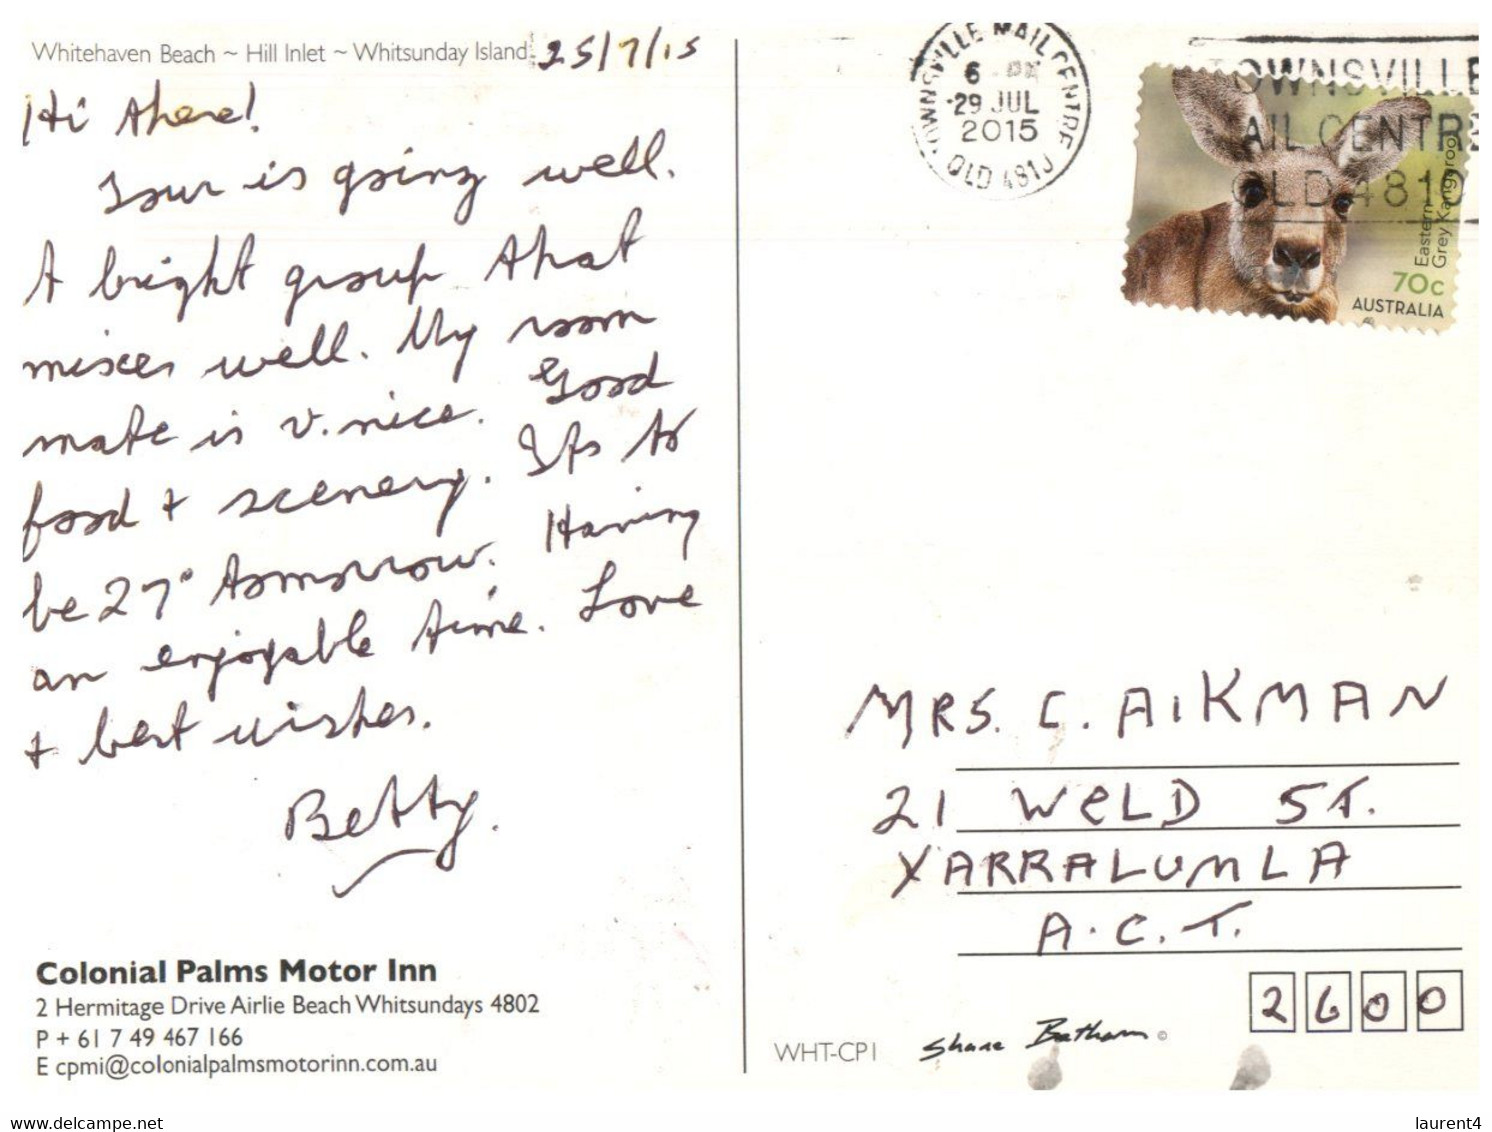 Whitehaven Beach ~ Hill Inlet ~ Whitsunday Island
25/7/15
Hi there!
Tour is going well.
A bright group that
mixes well. My room
mate is v. nice. Good
food + scenery. Its to
be 27° tomorrow. Having
an enjoyable time. Love
+ best wishes.
Betty.
Colonial Palms Motor Inn
2 Hermitage Drive Airlie Beach Whitsundays 4802
P + 61 7 49 467 166
E cpmi@colonialpalmsmotorinn.com.au
TOWNSVILLE MAIL CENTRE
6 PM
29 JUL
2015
QLD 4810
TOWNSVILLE
MAIL CENTRE
QLD 4810
Eastern
Grey Kangaroo
70c
AUSTRALIA
MRS. C. AIKMAN
21 WELD ST.
YARRALUMLA
A.C.T.
2600
WHT-CP1
Shane Batham ©
www.delcampe.net
laurent4